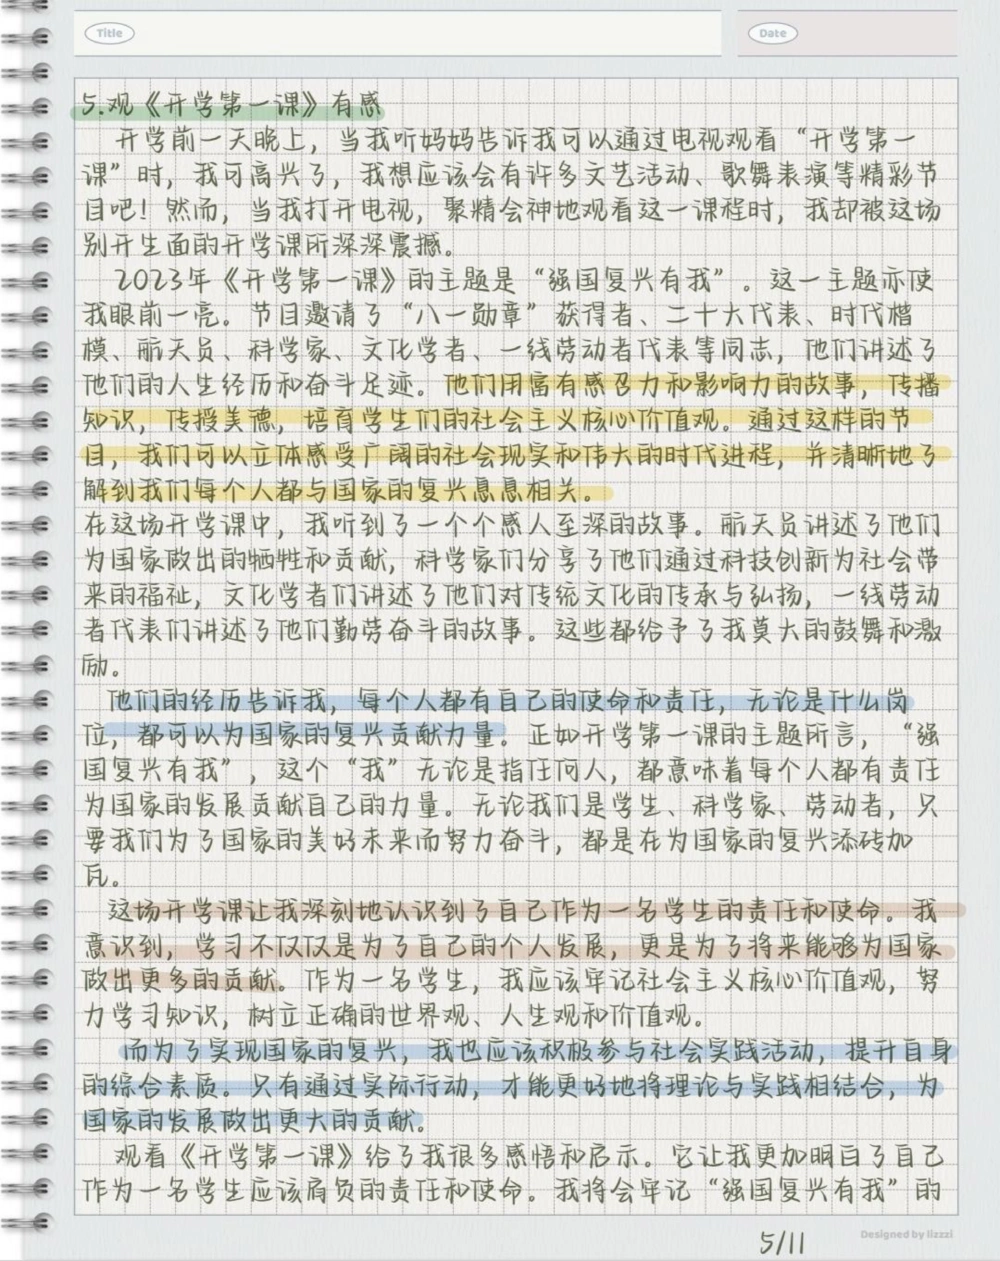 Title
Date
5.观《开学第一课》有感
开学前一天晚上，当我听妈妈告诉我可以通过电视观看“开学第一
课”时，我可高兴了，我想应该会有许多文艺活动、歌舞表演等精彩节
目吧！然而，当我打开电视，聚精会神地观看这一课程时，我却被这场
别开生面的开学课所深深震撼。
2023年《开学第一课》的主题是“强国复兴有我”。这一主题亦使
我眼前一亮。节目邀请了“八一勋章”获得者、二十大代表、时代楷
模、航天员、科学家、文化学者、一线劳动者代表等同志，他们讲述了
他们的人生经历和奋斗足迹。他们用富有感召力和影响力的故事，传播
知识，传授美德，培育学生们的社会主义核心价值观。通过这样的节
目，我们可以立体感受广阔的社会现实和伟大的时代进程，并清晰地了
解到我们每个人都与国家的复兴息息相关。
在这场开学课中，我听到了一个个感人至深的故事。航天员讲述了他们
为国家做出的牺牲和贡献，科学家们分享了他们通过科技创新为社会带
来的福祉，文化学者们讲述了他们对传统文化的传承与弘扬，一线劳动
者代表们讲述了他们勤劳奋斗的故事。这些都给予了我莫大的鼓舞和激
励。
他们的经历告诉我，每个人都有自己的使命和责任，无论是什么岗
位，都可以为国家的复兴贡献力量。正如开学第一课的主题所言，“强
国复兴有我”，这个“我”无论是指任何人，都意味着每个人都有责任
为国家的发展贡献自己的力量。无论我们是学生、科学家、劳动者，只
要我们为了国家的美好未来而努力奋斗，都是在为国家的复兴添砖加
瓦。
这场开学课让我深刻地认识到了自己作为一名学生的责任和使命。我
意识到，学习不仅仅是为了自己的个人发展，更是为了将来能够为国家
做出更多的贡献。作为一名学生，我应该牢记社会主义核心价值观，努
力学习知识，树立正确的世界观、人生观和价值观。
而为了实现国家的复兴，我也应该积极参与社会实践活动，提升自身
的综合素质。只有通过实际行动，才能更好地将理论与实践相结合，为
国家的发展做出更大的贡献。
观看《开学第一课》给了我很多感悟和启示。它让我更加明白了自己
作为一名学生应该肩负的责任和使命。我将会牢记“强国复兴有我”的
5/11
Designed by lizzzi